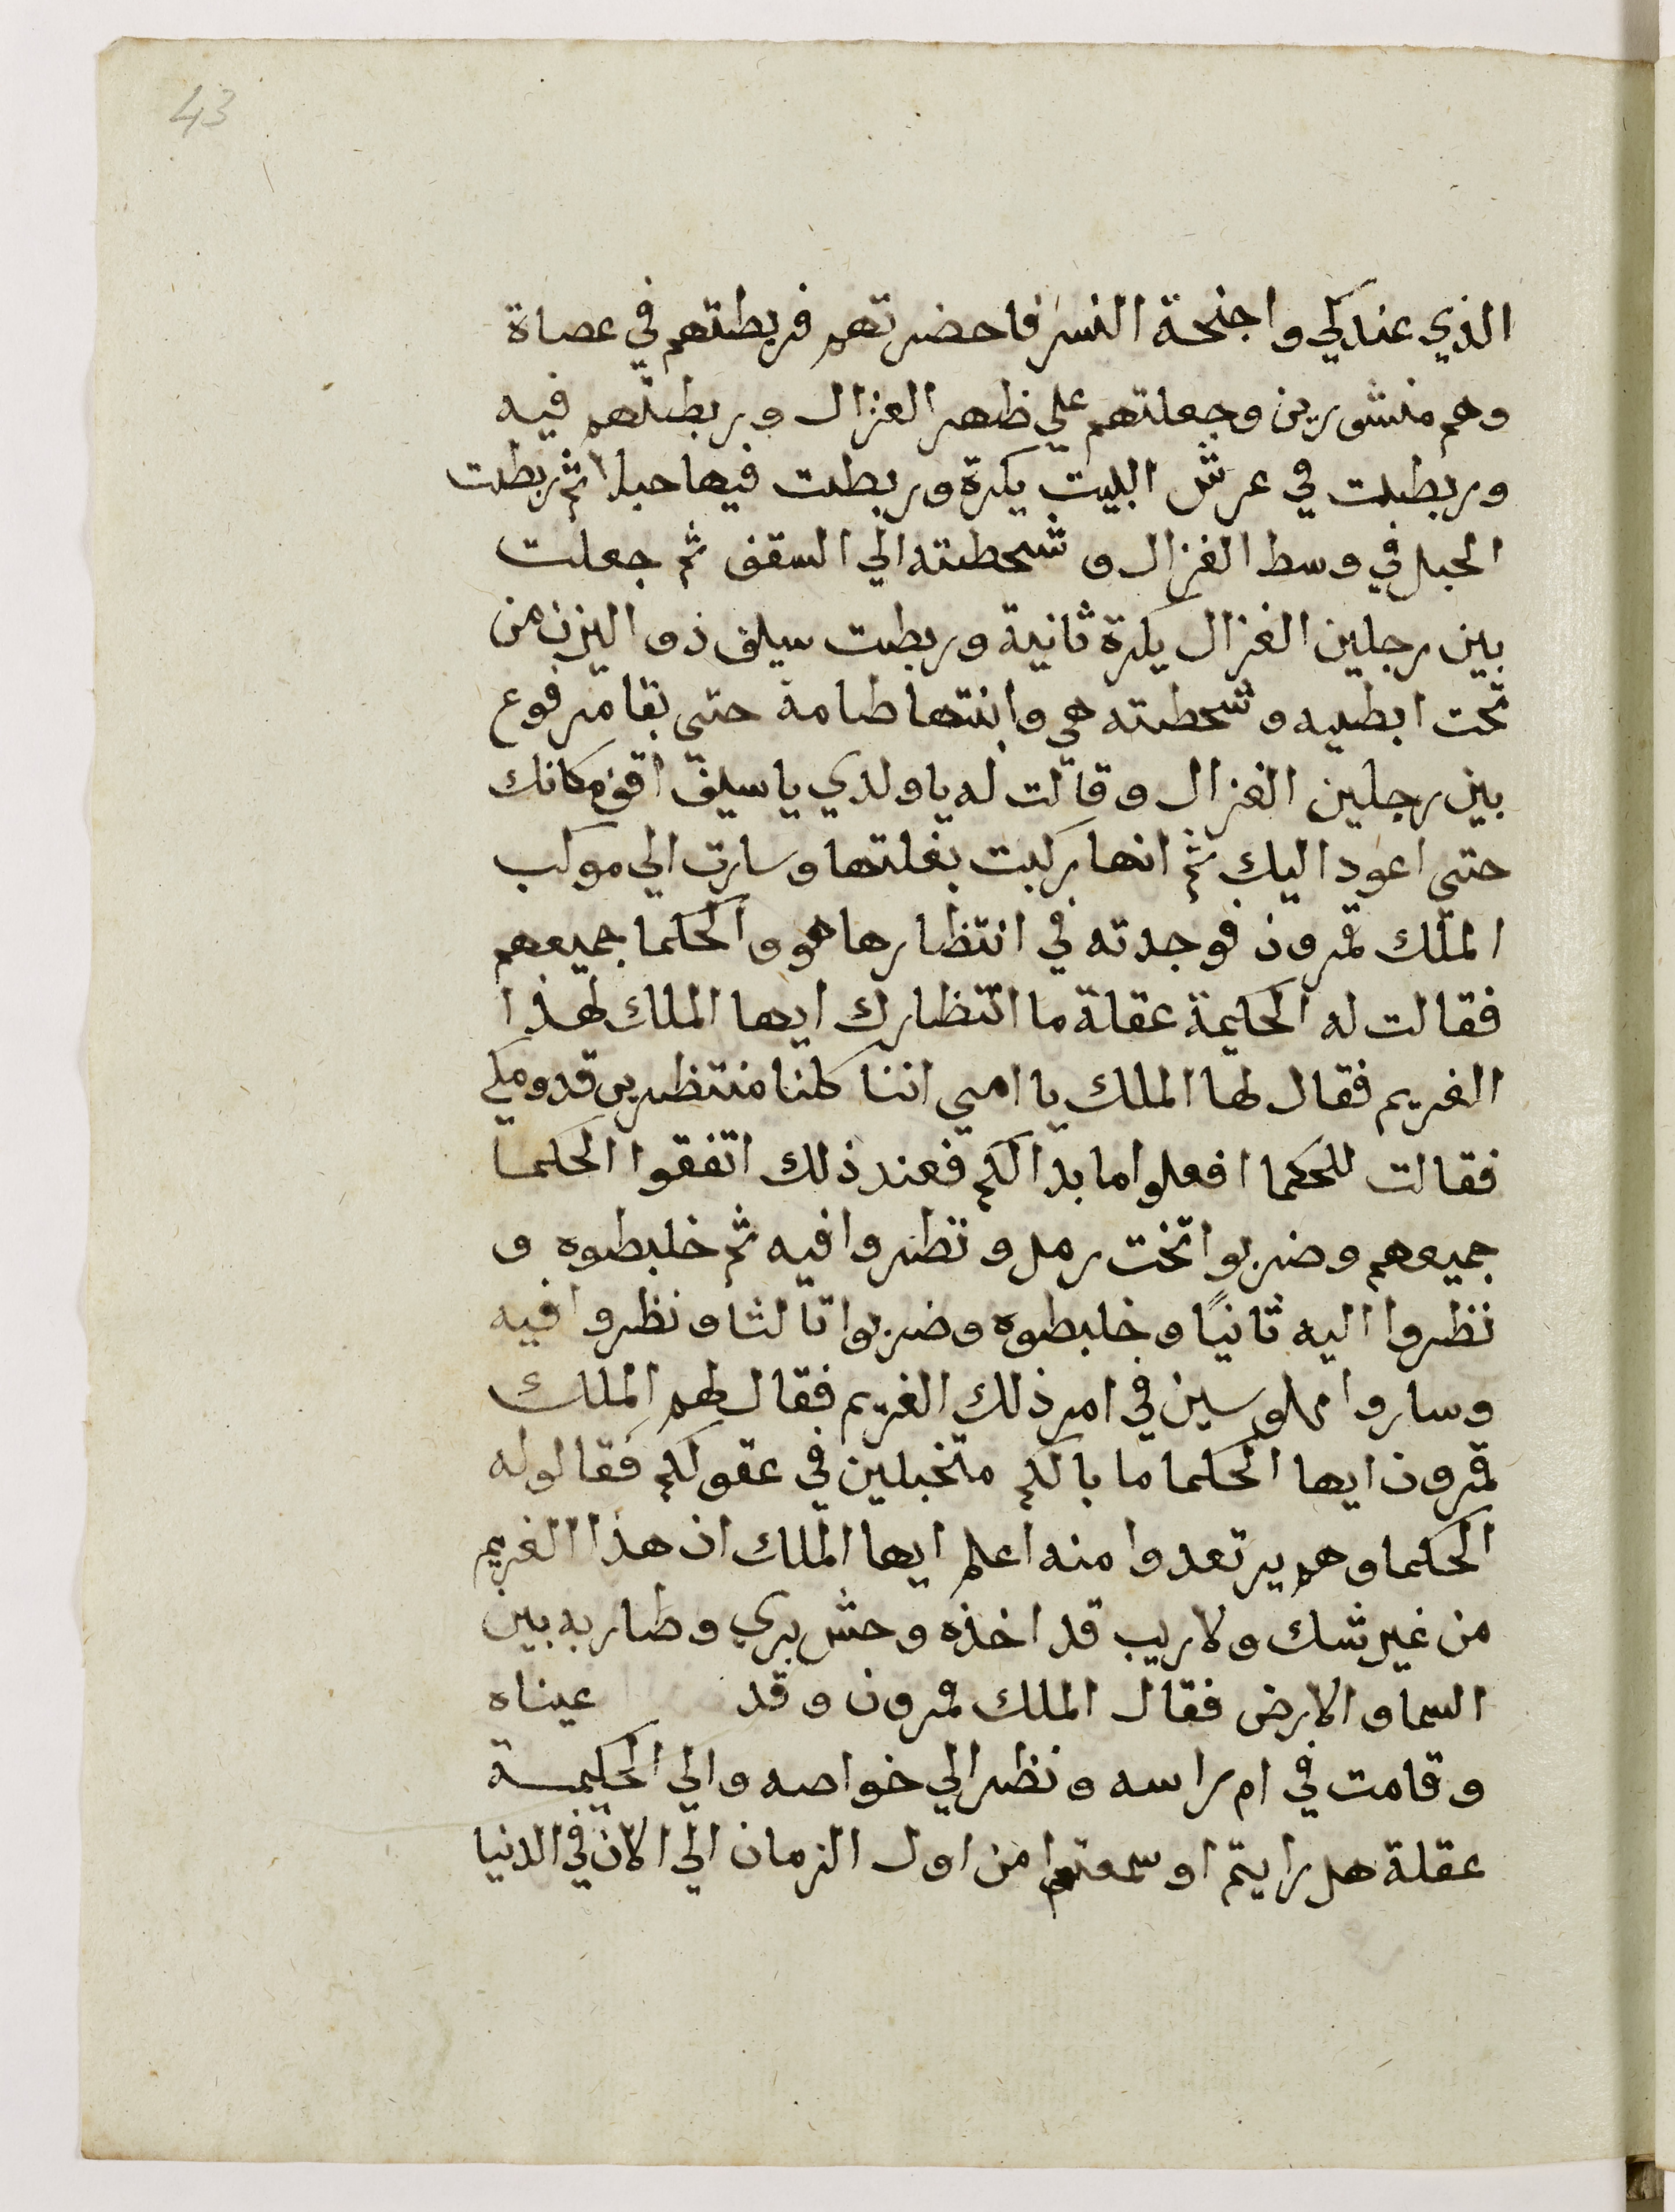 43
الذي عندكي واجنحة النسر فاحضرتهم فربطتهم في عصاة
وهم منشورين وجعلتهم علي ظهر الغزال وربطتهم فيه
وربطت في عرش البيت بكرة وربطت فيها حبلا ثم ربطت
الحبل في وسط الغزال وشحطته الي السقف ثم جعلت
بين رجلين الغزال بكرة ثانية وربطت سيف ذو اليزن من
تحت ابطيه وشحطته هي وابنتها طامة حتى بقا مرفوع
بين رجلين الغزال وقالت له يا ولدي يا سيف اقف مكانك
حتى اعود اليك ثم انها ركبت بغلتها وسارت الي موكب
الملك قمرون فوجدته في انتظارها هو والحكما جميعهم
فقالت له الحكيمة عقلة ما انتظارك ايها الملك لهذا
الغريم فقال لها الملك يا امي اننا كلنا منتظرين قدومكي
فقالت للحكما افعلوا ما بدا لكم فعند ذلك اتفقوا الحكما
جميعهم وضربوا تخت رمل ونظروا فيه ثم خلبطوه و
نظروا اليه ثانيًا وخلبطوه وضربوا تالثا ونظروا فيه
وساروا مهلوسين في امر ذلك الغريم فقال لهم الملك
قمرون ايها الحكما ما بالكم متخبلين في عقولكم فقالوا له
الحكما وهم يرتعدوا منه اعلم ايها الملك ان هذا الغريم
من غير شك ولا ريب قد اخذه وحش بري وطار به بين
السما والارض فقال الملك قمرون وقد عيناه
وقامت في ام راسه ونظر الي خواصه والي الحكيمة
عقلة هل رايتم او سمعتوا من اول الزمان الي الان في الدنيا